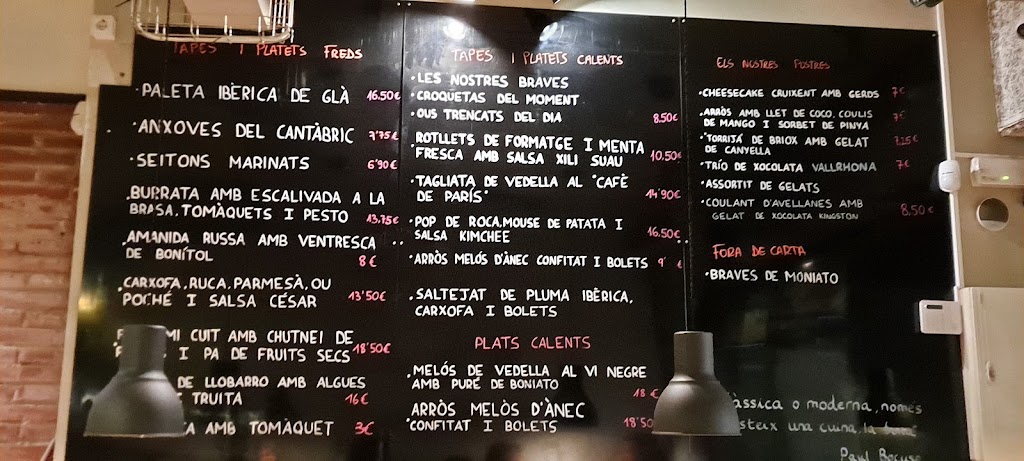 TAPES I PLATETS FREDS
PALETA IBÈRICA DE GLÀ 16.50€
ANXOVES DEL CANTÀBRIC 7'75€
SEITONS MARINATS 6'90€
BURRATA AMB ESCALIVADA A LA
BRASA, TOMÀQUETS I PESTO 13.75€
AMANIDA RUSSA AMB VENTRESCA
DE BONÍTOL 8€
CARXOFA, RUCA, PARMESÀ, OU
POCHÉ I SALSA CÉSAR 13'50€
MI CUIT AMB CHUTNEI DE
I PA DE FRUITS SECS 18'50€
DE LLOBARRO AMB ALGUES
TRUITA 16€
AMB TOMÀQUET 3€
TAPES I PLATETS CALENTS
LES NOSTRES BRAVES
CROQUETAS DEL MOMENT
OUS TRENCATS DEL DIA 8.50€
ROTLLETS DE FORMATGE I MENTA
FRESCA AMB SALSA XILI SUAU 10.50€
TAGLIATA DE VEDELLA AL "CAFÈ
DE PARÍS" 14'90€
POP DE ROCA, MOUSE DE PATATA I
SALSA KIMCHEE 16.50€
ARRÒS MELÓS D'ÀNEC CONFITAT I BOLETS 9' €
SALTEJAT DE PLUMA IBÈRICA,
CARXOFA I BOLETS
PLATS CALENTS
MELÓS DE VEDELLA AL VI NEGRE
AMB PURÉ DE BONIATO 18€
ARRÒS MELÒS D'ÀNEC
CONFITAT I BOLETS 18'50
ELS NOSTRES POSTRES
CHEESECAKE CRUIXENT AMB GERDS 7€
ARRÒS AMB LLET DE COCO, COULIS
DE MANGO I SORBET DE PINYA 7€
TORRIJA DE BRIOX AMB GELAT
DE CANYELLA 7.25€
TRÍO DE XOCOLATA VALLRHONA 7€
ASSORTIT DE GELATS
COULANT D'AVELLANES AMB
GELAT DE XOCOLATA KINGSTON 8,50€
FORA DE CARTA
BRAVES DE MONIATO
àssica o moderna, només
steix una cuina, la
Paul Bocuse